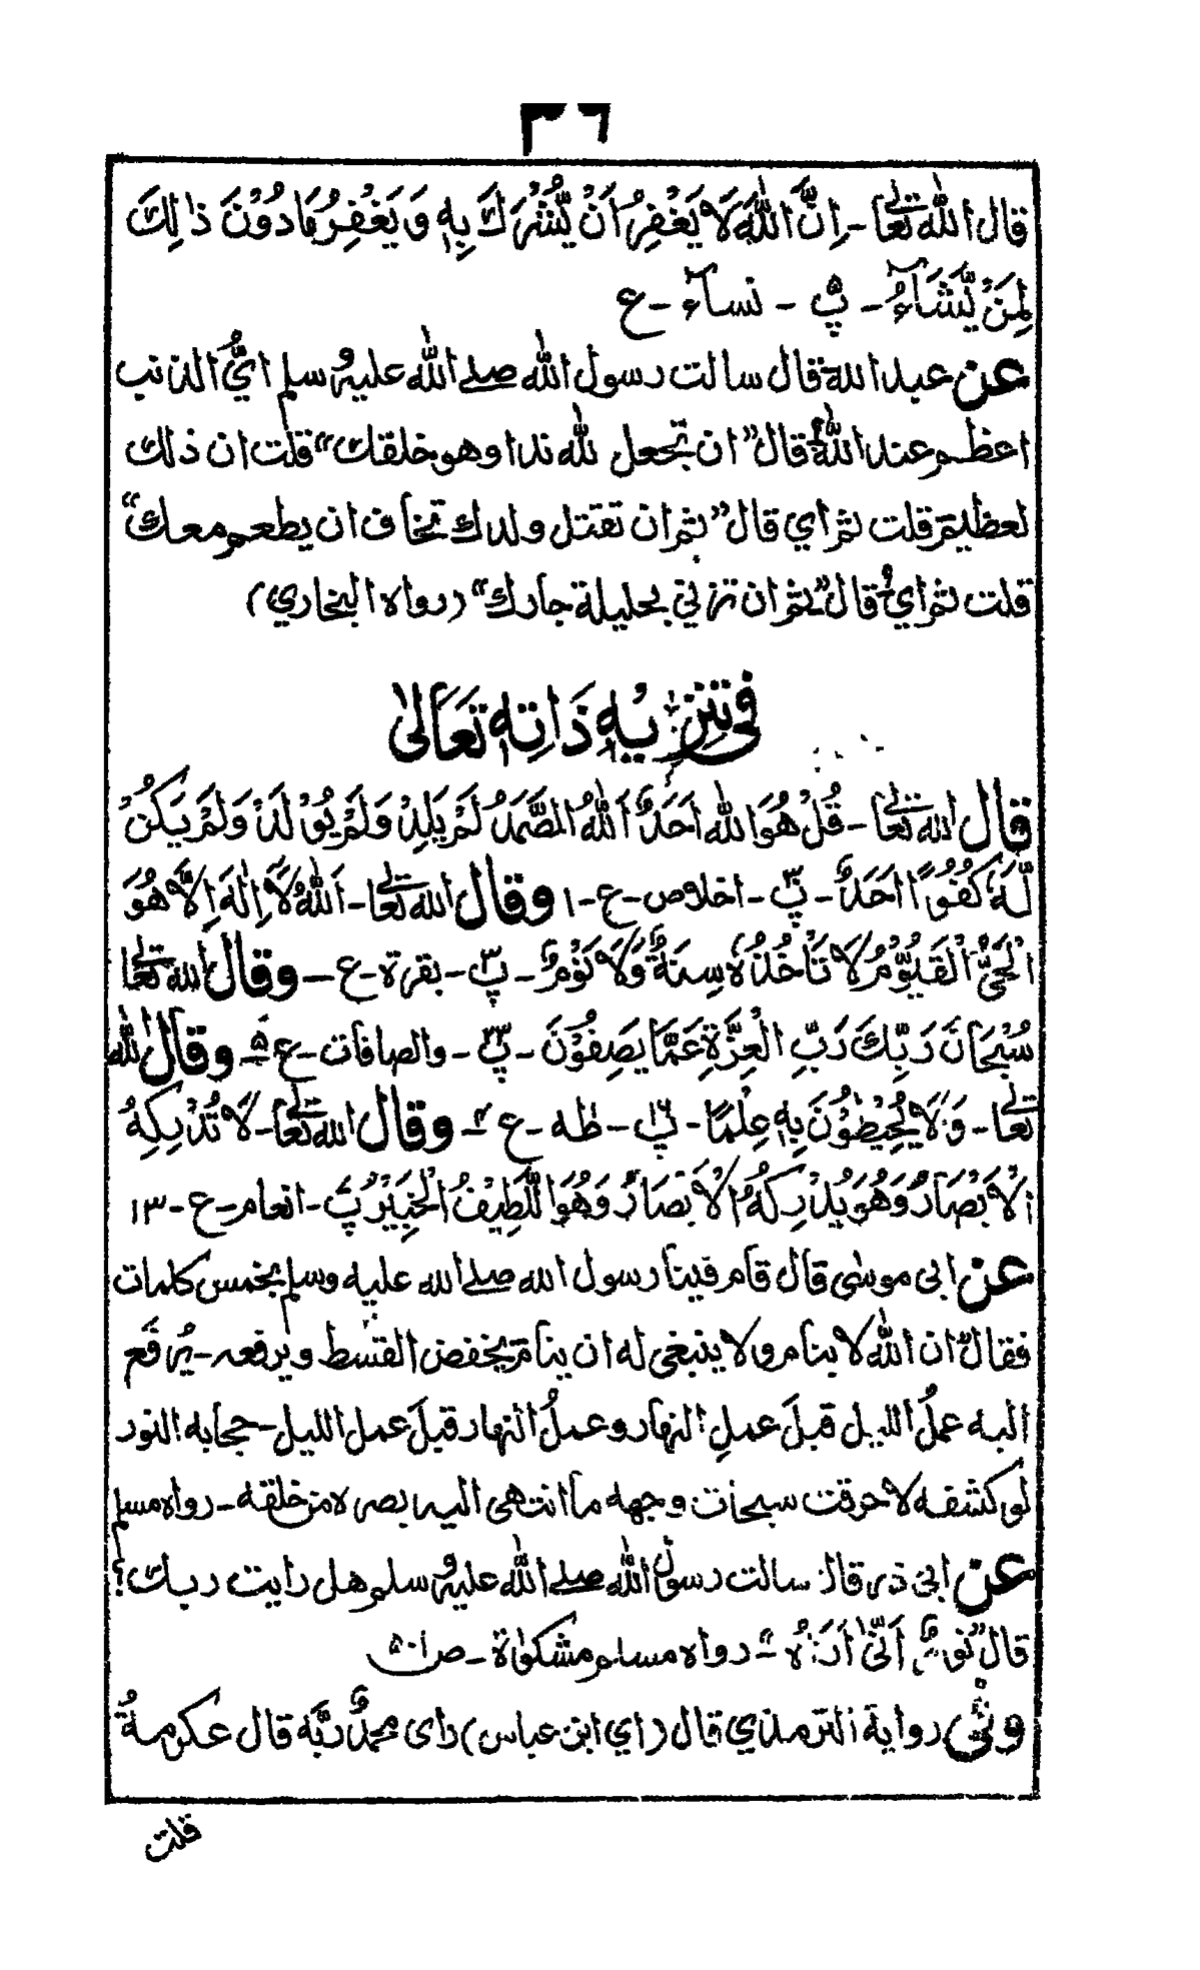 ٣٦
قال الله تعالى - اِنَّ اللّٰهَ لَا يَغْفِرُ اَنْ يُّشْرَكَ بِهٖ وَ يَغْفِرُ مَادُوْنَ ذٰلِكَ
لِمَنْ يَّشَآءُ - پ ٥ - نسآء - ع
عن عبد الله قال سالت رسول الله صلے الله عليه وسلم ايُّ الذنب
اعظم عند الله؟ قال "ان تجعل لله ندا وهو خلقك" قلت ان ذلك
لعظيم قلت ثم اي قال "ثم ان تقتل ولدك تخاف ان يطعم معك"
قلت ثم اي؟ قال "ثم ان تزني بحليلة جارك" (رواه البخاري)
فى تنزيهِ ذَاتِهٖ تَعَالىٰ
قال الله تعالى - قُلْ هُوَ اللّٰهُ اَحَدٌ اَللّٰهُ الصَّمَدُ لَمْ يَلِدْ وَلَمْ يُوْلَدْ وَلَمْ يَكُنْ
لَّهٗ كُفُوًا اَحَدٌ - پ ٣٠ - اخلاص - ع - ١ وقال الله تعالى - اَللّٰهُ لَا اِلٰهَ اِلَّا هُوَ
الْحَيُّ الْقَيُّوْمُ لَا تَأْخُذُهٗ سِنَةٌ وَّلَا نَوْمٌ - پ ٣ - بقرة - ع - وقال الله تعالى
سُبْحَانَ رَبِّكَ رَبِّ الْعِزَّةِ عَمَّا يَصِفُوْنَ - پ ٢٣ - والصافات - ع ٥ - وقال الله
تعالى - وَلَا يُحِيْطُوْنَ بِهٖ عِلْمًا - پ ١٦ - طٰه - ع - وقال الله تعالى - لَا تُدْرِكُهُ
الْاَبْصَارُ وَهُوَ يُدْرِكُ الْاَبْصَارَ وَهُوَ اللَّطِيْفُ الْخَبِيْرُ پ ٧ - انعام - ع - ١٣
عن ابى موسٰى قال قام فينا رسول الله صلے الله عليه وسلم بخمس كلمات
فقال "ان الله لا ينام ولا ينبغى له ان ينام يخفض القسط ويرفعه - يُرفَع
اليه عملُ الليل قبلَ عملِ النهار وعملُ النهار قبلَ عمل الليل - حجابه النور
لو كشفه لاحرقت سبحات وجهه ما انتهى اليه بصره من خلقه - رواه مسلم
عن ابى ذر قال سالت رسول الله صلے الله عليه وسلم هل رايت ربك؟
قال "نورٌ اَنّٰى اَرَاهُ" - رواه مسلم مشكوٰة - ص ٥٠١
وفى رواية الترمذي قال (اي ابن عباس) راى محمدٌ ربَّه قال عكرمةُ
قلت